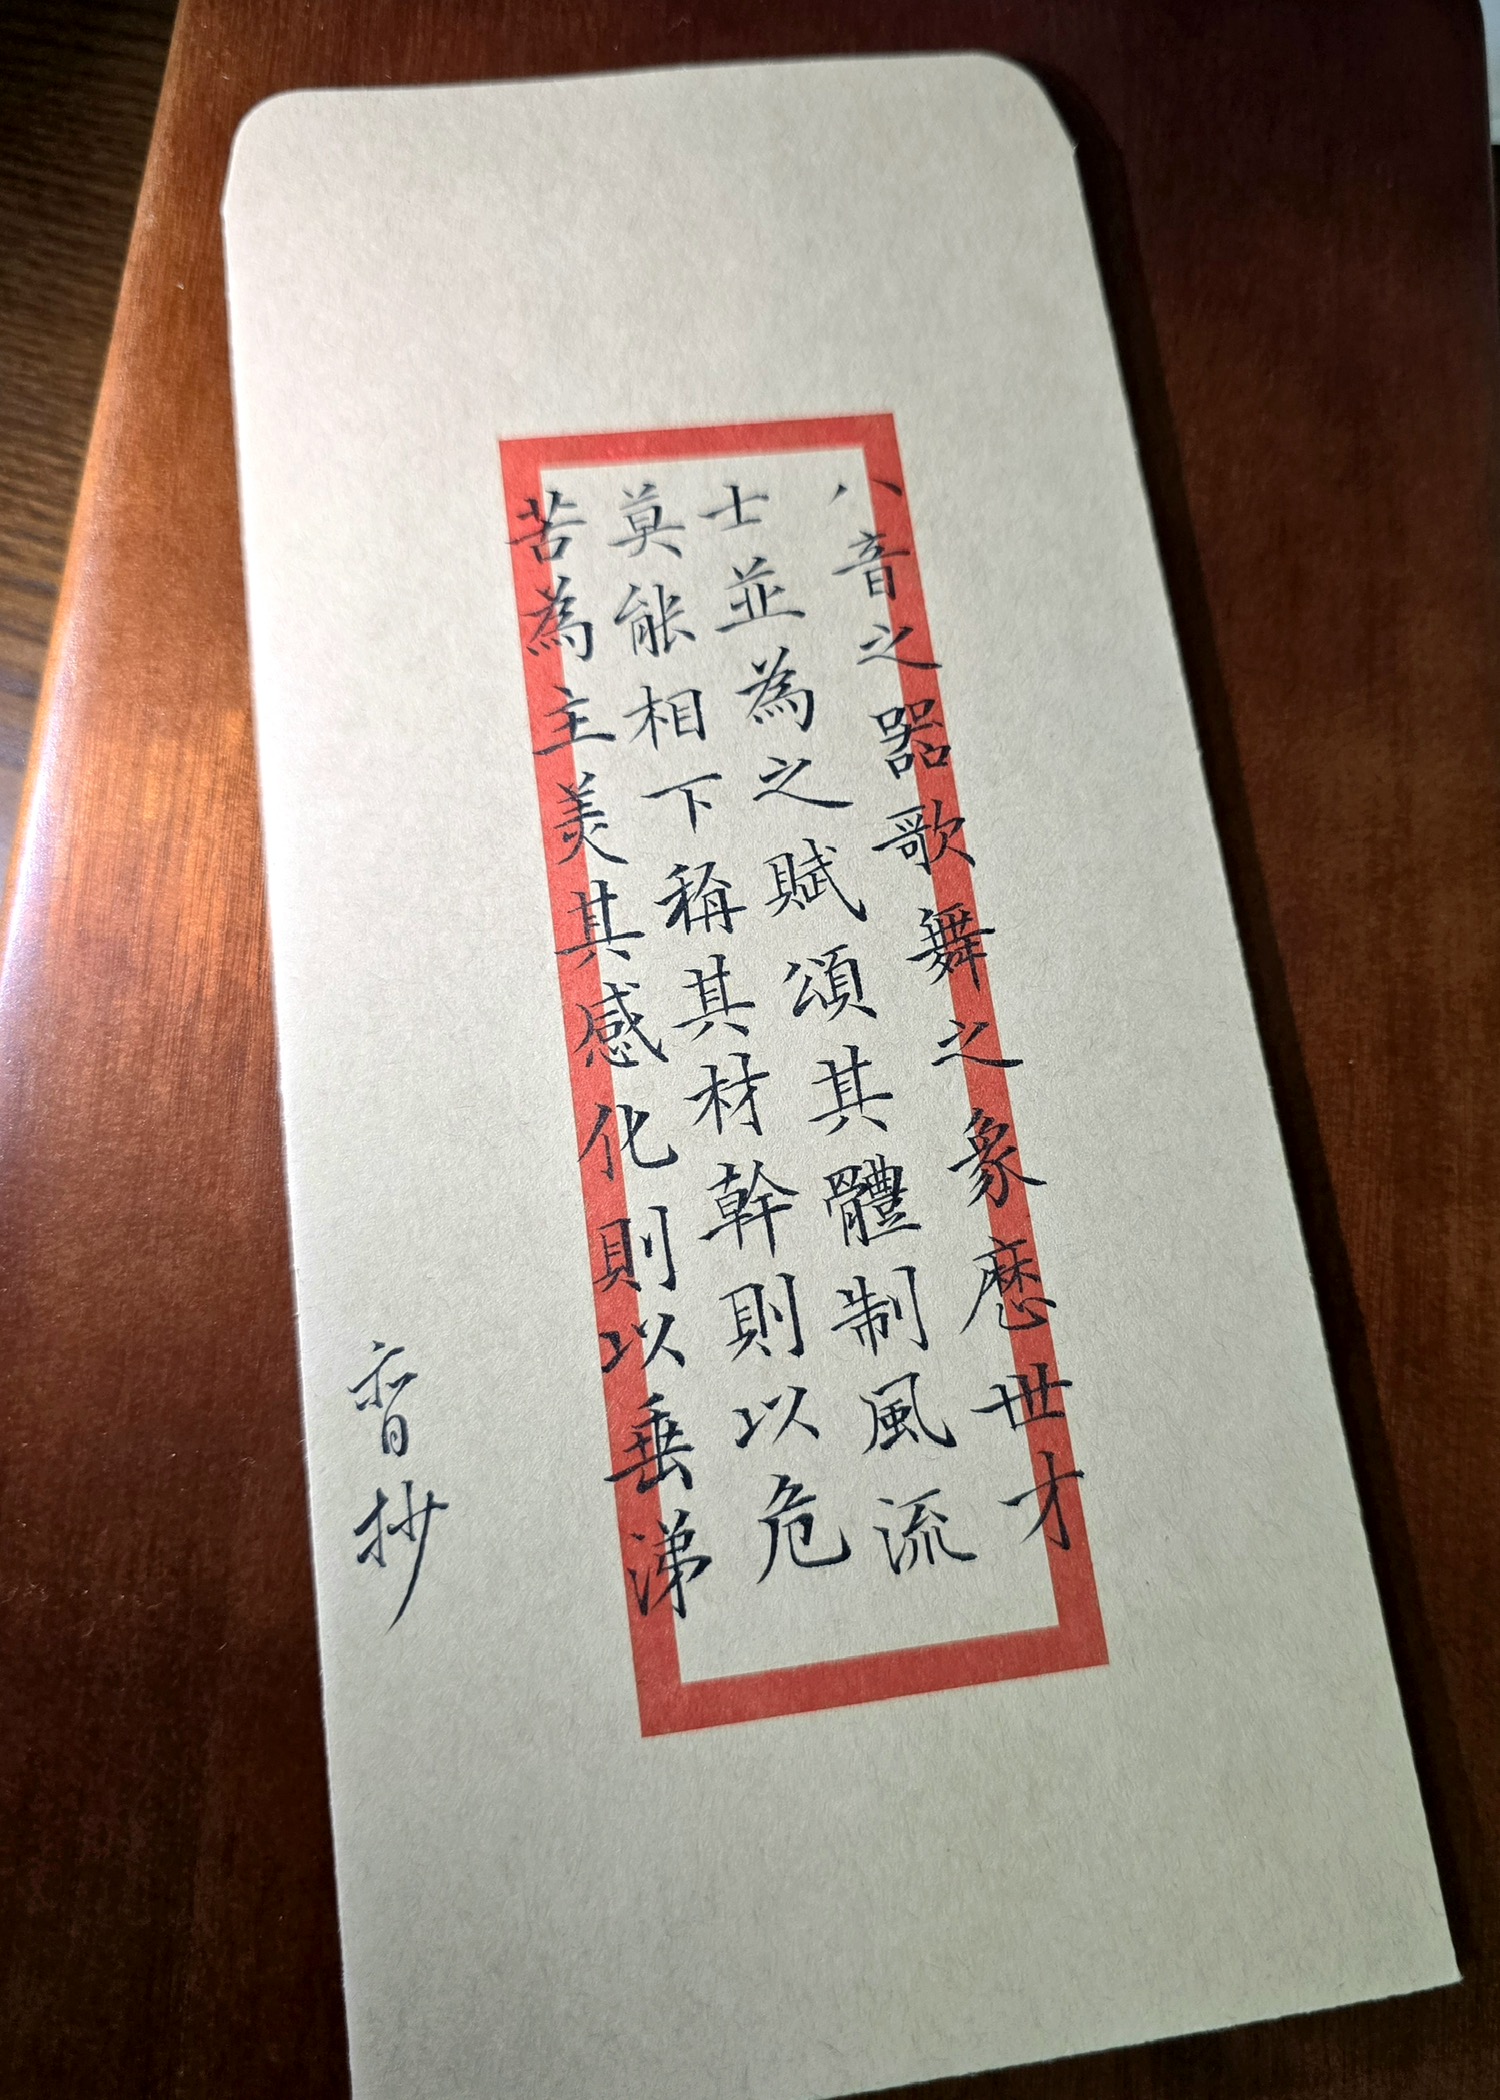 八音之器歌舞之象歷世才
士並為之賦頌其體制風流
莫能相下稱其材幹則以危
苦為主美其感化則以垂涕
抄